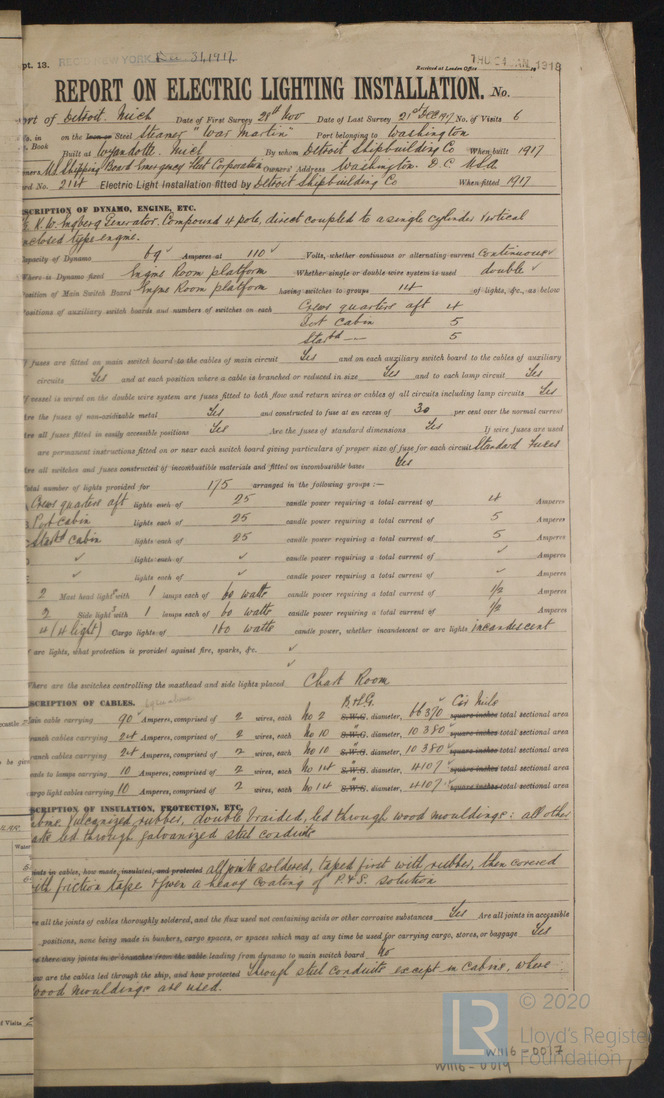 pt. 13.
REC'D NEW YORK Dec. 31, 1917
Received at London Office THU 24 JAN. 1918
REPORT ON ELECTRIC LIGHTING INSTALLATION. No.
ort of Detroit. Mich Date of First Survey 28th Nov Date of Last Survey 21st Dec 1917 No. of Visits 6
o. in on the Iron or Steel Steamer "War Martin" Port belonging to Washington
. Book Built at Wyandotte. Mich By whom Detroit Shipbuilding Co When built 1917
wners U.S. Shipping Board Emergency Fleet Corporation Owners' Address Washington. D.C. U.S.A.
rd No. 214 Electric Light Installation fitted by Detroit Shipbuilding Co When fitted 1917
SCRIPTION OF DYNAMO, ENGINE, ETC.
K.W. Engberg Generator. Compound 4 pole, direct coupled to a single cylinder Vertical
nclosed type engine.
apacity of Dynamo 69 ✓ Amperes at 110 ✓ Volts, whether continuous or alternating current Continuous ✓
Where is Dynamo fixed Engine Room platform Whether single or double wire system is used double ✓
osition of Main Switch Board Engine Room platform having switches to groups 14 of lights, &c., as below
ositions of auxiliary switch boards and numbers of switches on each Crews quarters aft 4
Port Cabin 5
Starbd — 5
f fuses are fitted on main switch board to the cables of main circuit Yes and on each auxiliary switch board to the cables of auxiliary
circuits Yes and at each position where a cable is branched or reduced in size Yes and to each lamp circuit Yes
f vessel is wired on the double wire system are fuses fitted to both flow and return wires or cables of all circuits including lamp circuits Yes
re the fuses of non-oxidizable metal Yes and constructed to fuse at an excess of 30 per cent over the normal current
re all fuses fitted in easily accessible positions Yes Are the fuses of standard dimensions Yes If wire fuses are used
are permanent instructions fitted on or near each switch board giving particulars of proper size of fuse for each circuit Standard Fuses
re all switches and fuses constructed of incombustible materials and fitted on incombustible bases Yes
otal number of lights provided for 175 arranged in the following groups :—
Crews quarters aft lights each of 25 candle power requiring a total current of 4 Amperes
Port cabin lights each of 25 candle power requiring a total current of 5 Amperes
Starbd cabin lights each of 25 candle power requiring a total current of 5 Amperes
✓ lights each of ✓ candle power requiring a total current of ✓ Amperes
✓ lights each of ✓ candle power requiring a total current of ✓ Amperes
2 Mast head lights with 1 lamps each of 60 watts candle power requiring a total current of 1/2 Amperes
2 Side lights with 1 lamps each of 60 watts candle power requiring a total current of 1/2 Amperes
4 (4 light) Cargo lights of 160 watts candle power, whether incandescent or arc lights incandescent
f arc lights, what protection is provided against fire, sparks, &c. ✓
✓
Where are the switches controlling the masthead and side lights placed Chart Room
SCRIPTION OF CABLES. B&G. Cir Mils
ain cable carrying 90 Amperes, comprised of 2 wires, each No 2 S.W.G. diameter, 66370 square inches total sectional area
ranch cables carrying 24 Amperes, comprised of 2 wires, each No 10 S.W.G. diameter, 10380 square inches total sectional area
ranch cables carrying 24 Amperes, comprised of 2 wires, each No 10 S.W.G. diameter, 10380 square inches total sectional area
eads to lamps carrying 10 Amperes, comprised of 2 wires, each No 14 S.W.G. diameter, 4107 square inches total sectional area
argo light cables carrying 10 Amperes, comprised of 2 wires, each No 14 S.W.G. diameter, 4107 square inches total sectional area
SCRIPTION OF INSULATION, PROTECTION, ETC.
Vulcanized rubber, double braided, led through wood mouldings: all other
led through galvanized steel conduits
oints in cables, how made, insulated, and protected all joints soldered, taped first with rubber, then covered
with friction tape & given a heavy coating of P.&B. solution
re all the joints of cables thoroughly soldered, and the flux used not containing acids or other corrosive substances Yes Are all joints in accessible
positions, none being made in bunkers, cargo spaces, or spaces which may at any time be used for carrying cargo, stores, or baggage Yes
re there any joints in or branches from the cable leading from dynamo to main switch board No
ow are the cables led through the ship, and how protected Through steel conduits except in cabins, where
wood mouldings are used.
of Visits 2
© 2020
LR Lloyd's Register
Foundation
W1116-0017
W1116-0019